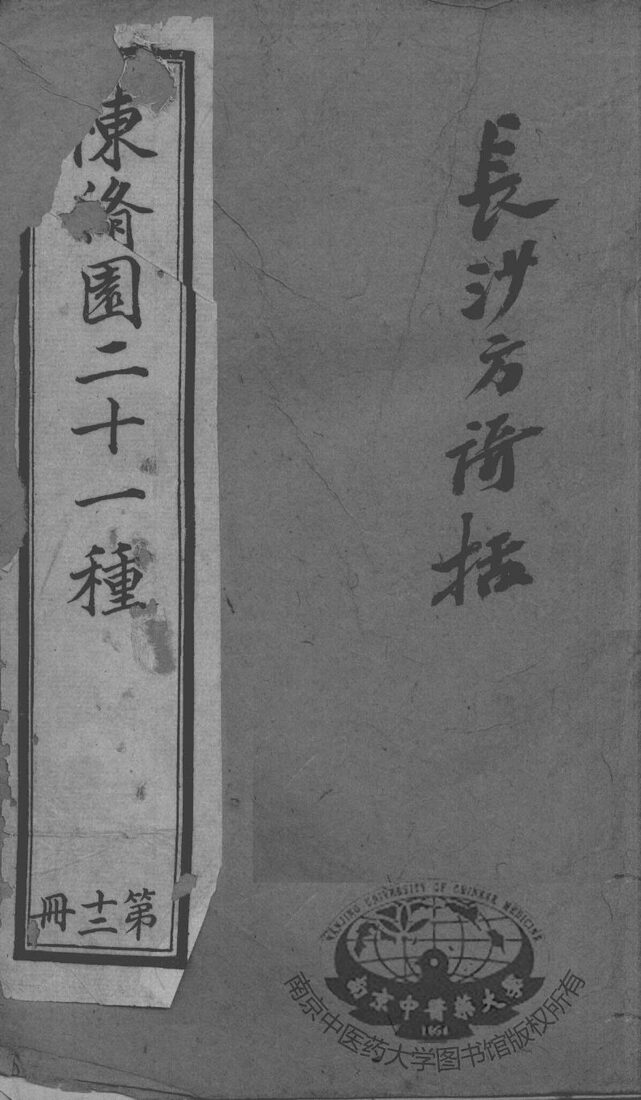 長沙方謌括
陳脩園二十一種
第十三冊
NANJING UNIVERSITY OF CHINESE MEDICINE
南京中醫藥大學
1954
南京中医药大学图书馆版权所有